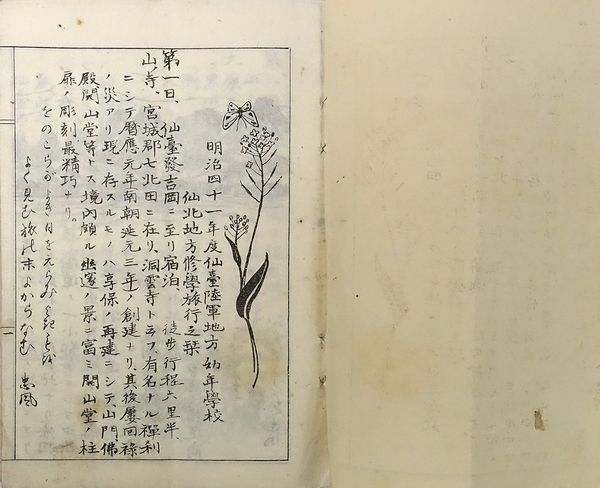 明治四十一年度仙臺陸軍地方幼年學校
仙北地方修學旅行之栞
第一日、仙臺發吉岡ニ至リ宿泊 徒歩行程六里半、
山ノ寺、宮城郡七北田ニ在リ、洞雲寺ト云フ、有名ナル禪刹
ニシテ暦應元年南朝延元三年ノ創建ナリ、其後屢回祿
ノ災アリ現ニ存スルモノハ享保ノ再建ニシテ、山門佛
殿開山堂等トス境內頗ル幽邃ノ景ニ富ミ開山堂ノ柱
扉ノ彫刻最精巧ナリ。
をのこらがよき日を
よく見む旅の末よからなむ 忠風